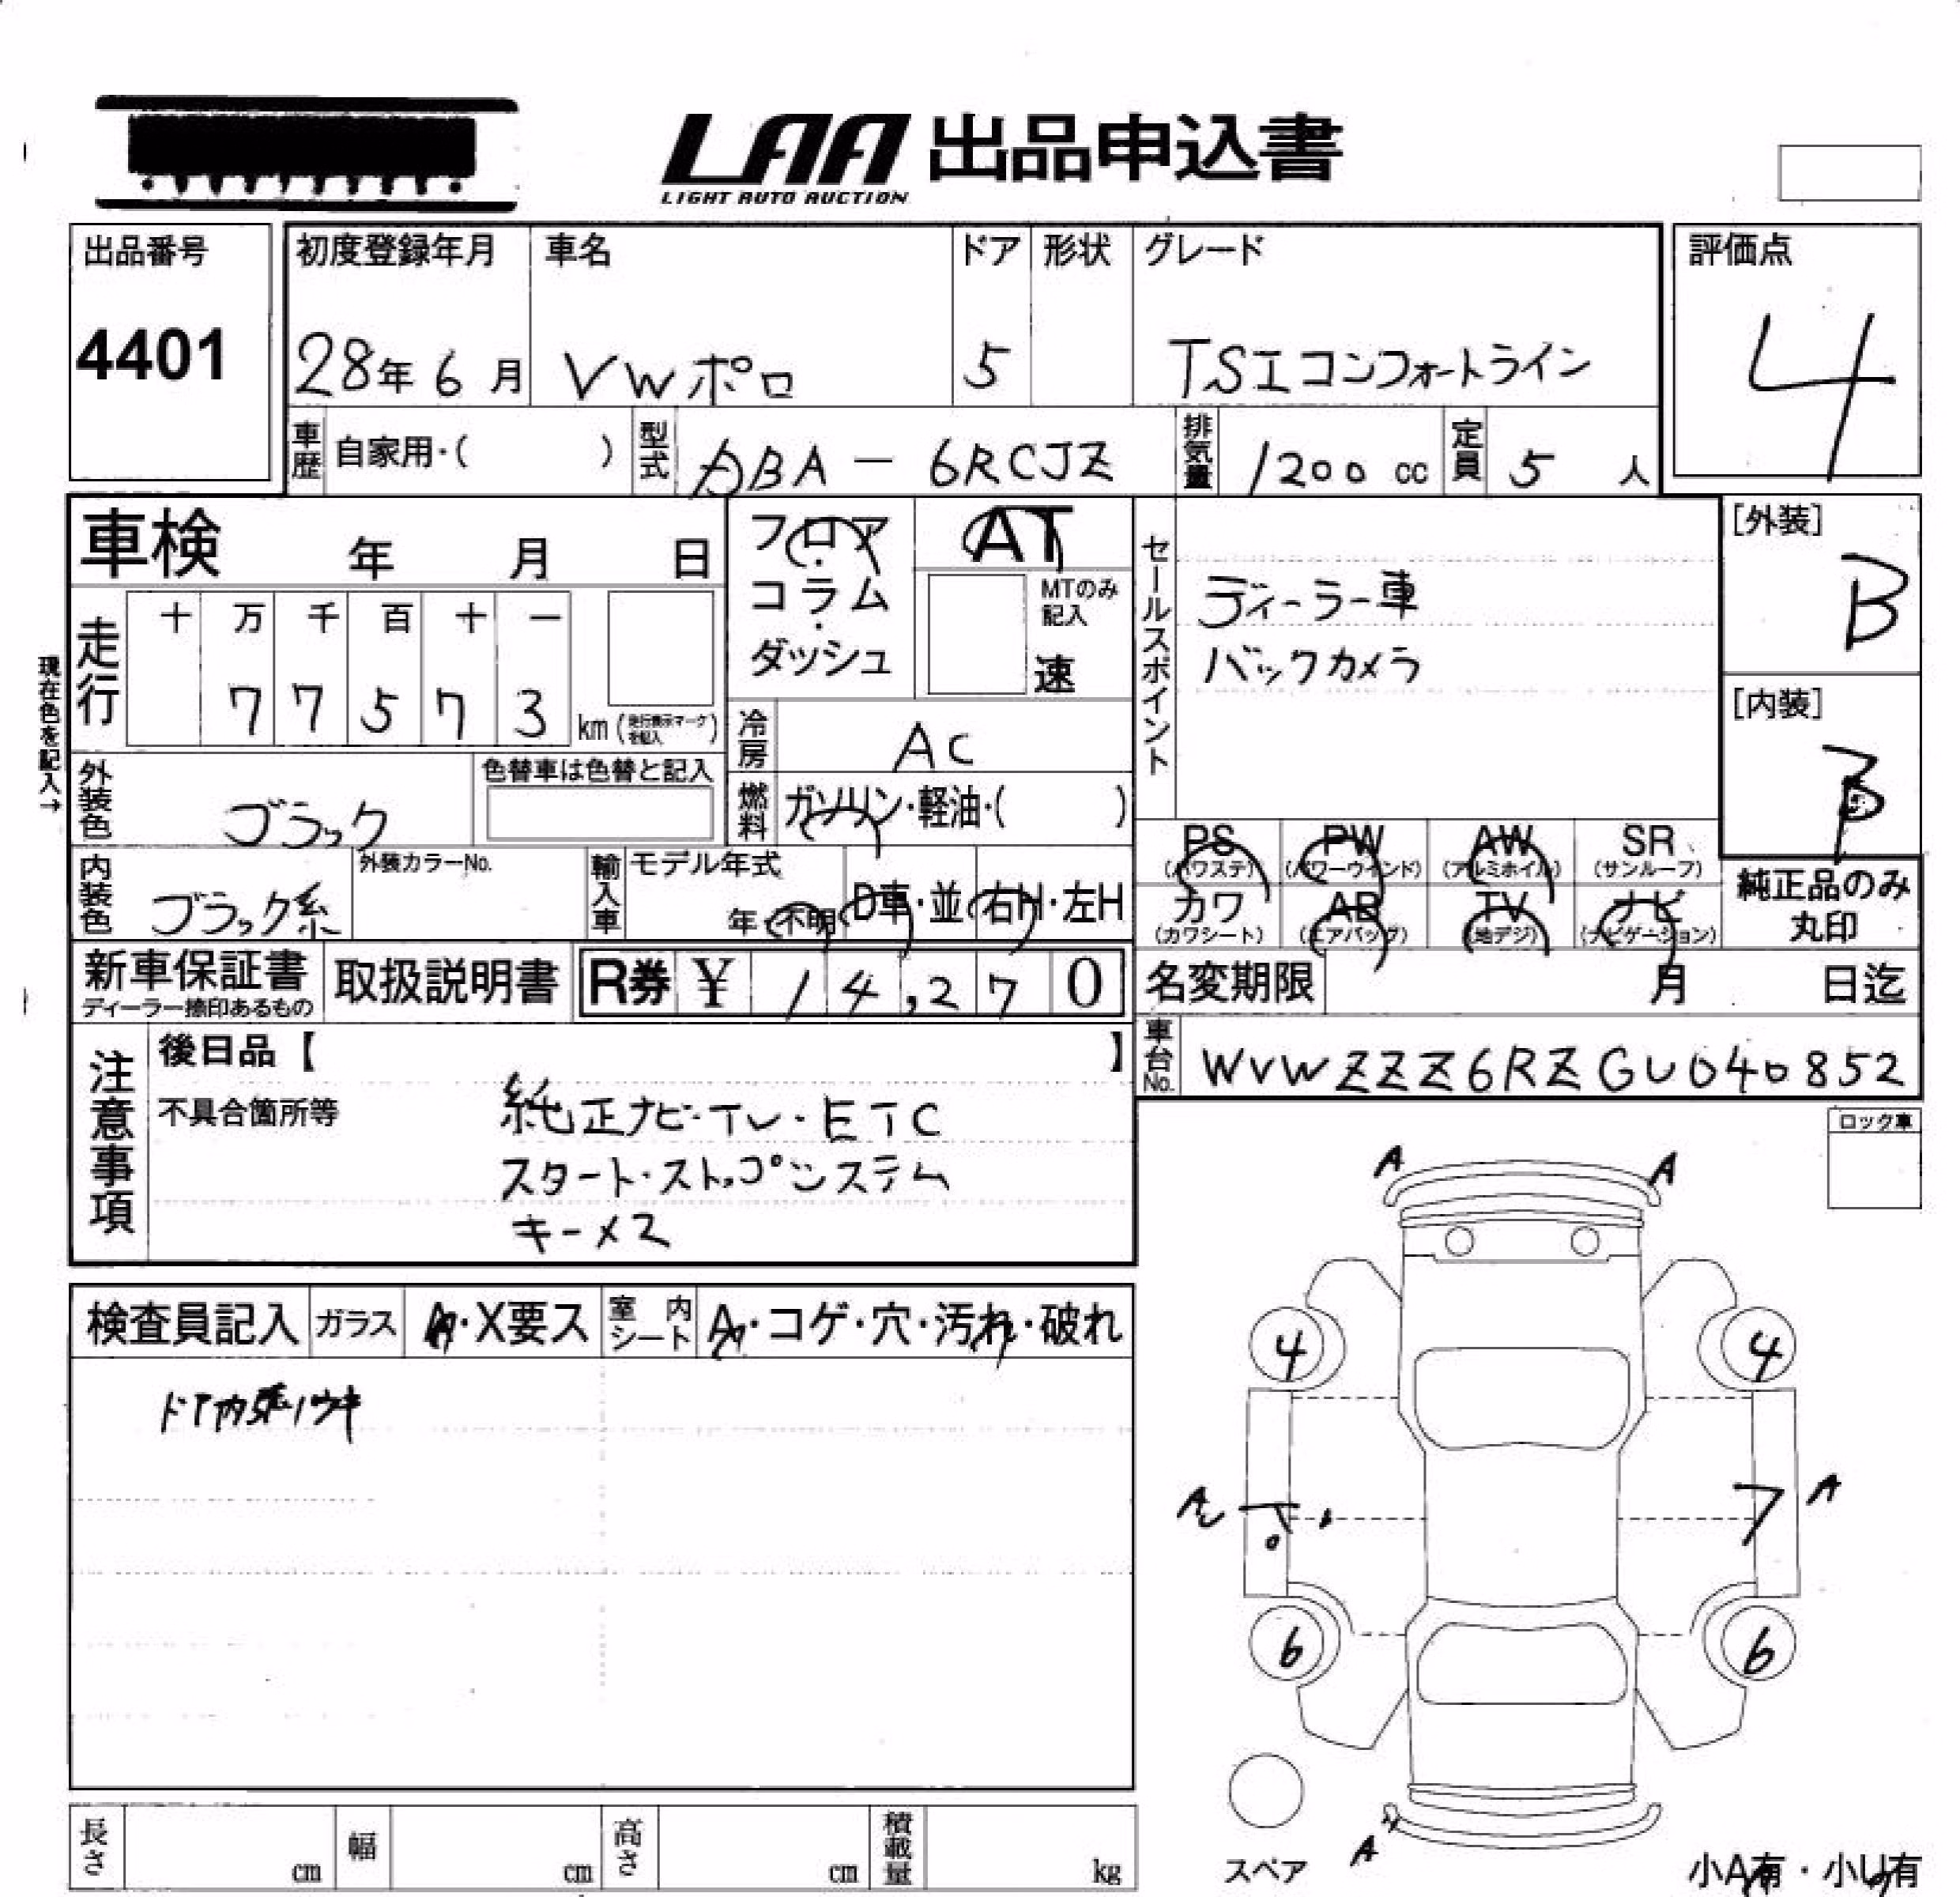 LAA 出品申込書
LIGHT AUTO AUCTION
出品番号
4401
初度登録年月
28年 6月
車名
VWポロ
ドア
5
形状
グレード
TSIコンフォートライン
評価点
4
車歴 自家用・( )
型式 ABA - 6RCJZ
排気量 1200 cc
定員 5 人
車検 年 月 日
フロア・コラム・ダッシュ
AT
MTのみ記入
速
セールスポイント
ディーラー車
バックカメラ
[外装]
B
[内装]
現在色を記入→
走行
十 万 千 百 十 一
7 7 5 7 3 km (走行表示マークを記入)
冷房 AC
燃料 ガソリン・軽油・( )
外装色 ブラック
色替車は色替と記入
内装色 ブラック系
外装カラーNo.
輸入車
モデル年式
年・不明
D車・並
右H・左H
PS (パワステ)
PW (パワーウインド)
AW (アルミホイル)
SR (サンルーフ)
カワ (カワシート)
AB (エアバッグ)
TV (地デジ)
ナビ (ナビゲーション)
純正品のみ丸印
新車保証書
ディーラー捺印あるもの
取扱説明書
R券 ¥ 14,270
名変期限 月 日迄
車台No. WVWZZZ6RZGU040852
注意事項
後日品【 】
不具合箇所等
純正ナビ・TV・ETC
スタート・ストップシステム
キーメス
ロック車
検査員記入
ガラス
A・X要ス
室内シート
A・コゲ・穴・汚れ・破れ
ドア内張ノウキ
A A
4 4
A
6 6
スペア
A
小A有・小U有
長さ cm
幅 cm
高さ cm
積載量 kg